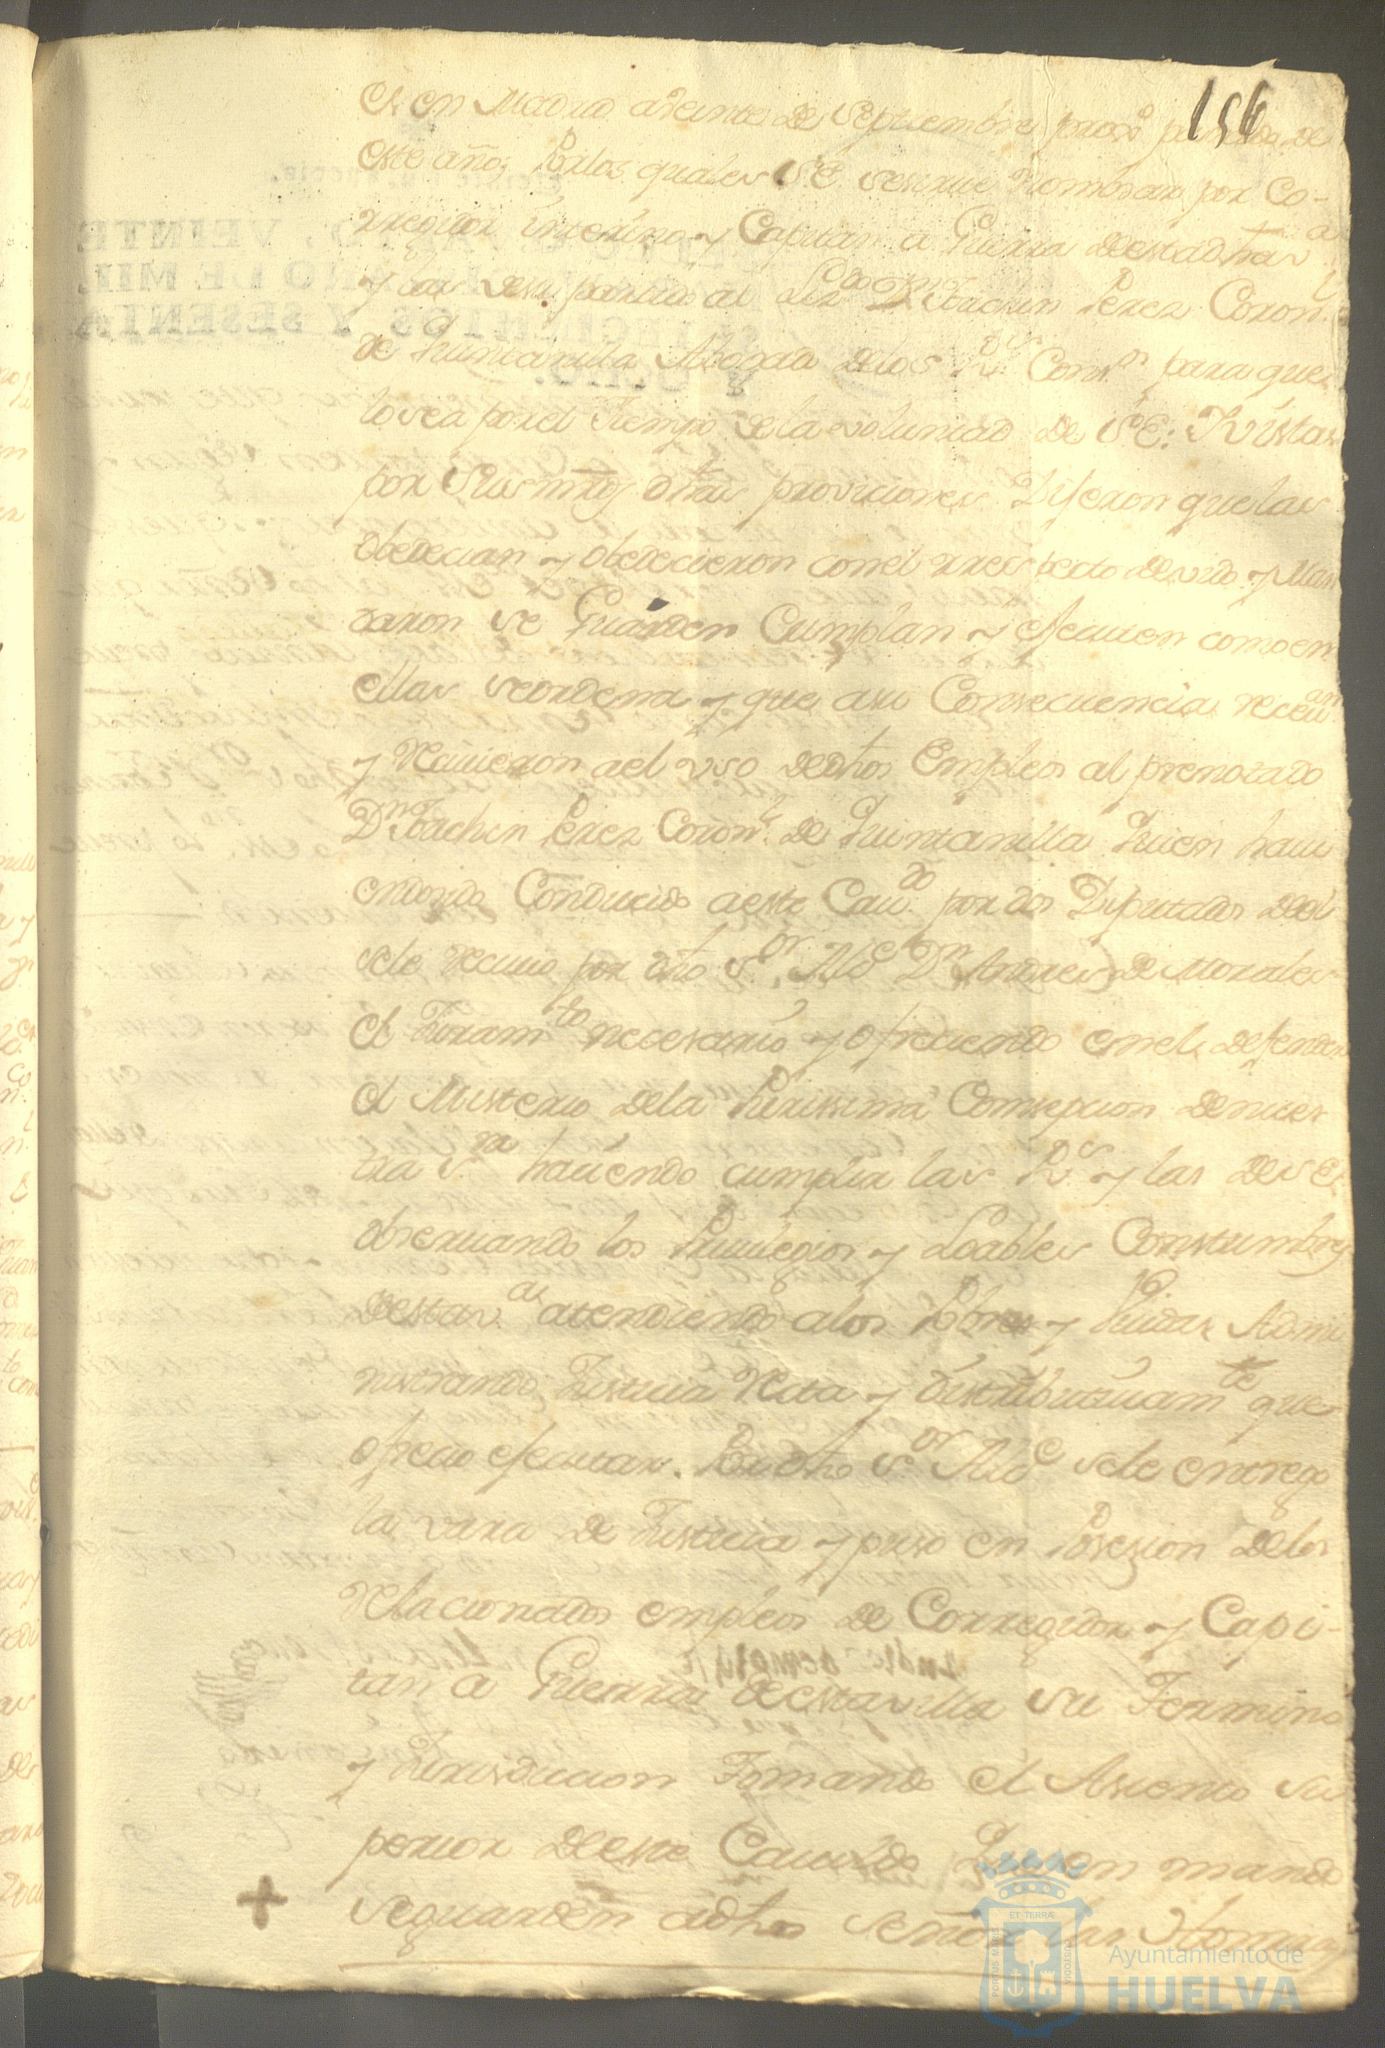 156
El en Madrid a Veinte de Septiembre proxo pasado de
este año; Por los quales S.E. se sirve Nombrar por Co-
rregidor interino y Capitan a Guerra de esta dha v.a
y las de su partido al Lizdo Dn Joachin Perez Coron.l
de Quintanilla Abogado de los Rs Cons.s para que
lo sea por el Tiempo de la voluntad de S.E: Vistas
por Sus mrds dhas proviciones Dijeron que las
obedecian y obedecieron con el rrespecto devido y Man
daron se Guarden Cumplan y efecuten como en
ellas se ordena y que a su Consecuencia recevian
y Recivieron a el vso de dhos Empleos al prenotado
Dn Joachin Perez Coron.l de Quintanilla Quien havi
endo sido Conducido a este Cav.do por dos Diputados de el
se le recivio por dho S.or Alc.e Dn Andres de Morales
el Juram.to necesario y ofreciendo en el defender
el Misterio de la Purissima Consepcion de nues
tra S.ra haciendo cumplir las Rs y las de S E.
observando los Privilegios y Loables Constumbres
de esta v.a atendiendo a los Pobres y Viudas Admi
nistrando Justicia Recta y distributivam.te que
ofrecio efecutar. Por dho S.or Alc.e se le entrego
la vara de Justicia y puso en Posesion de los
relacionados empleos de Corregidor y Capi-
tan a Guerra de esta villa su Termino
y Jurisdiccion Tomando el Asiento su
perior de este Cavildo Quien mando
se guarden a dho Señor las Honrras
ET TERRÆ
PORTUS MARIS
CUSTODIA
Ayuntamiento de
HUELVA